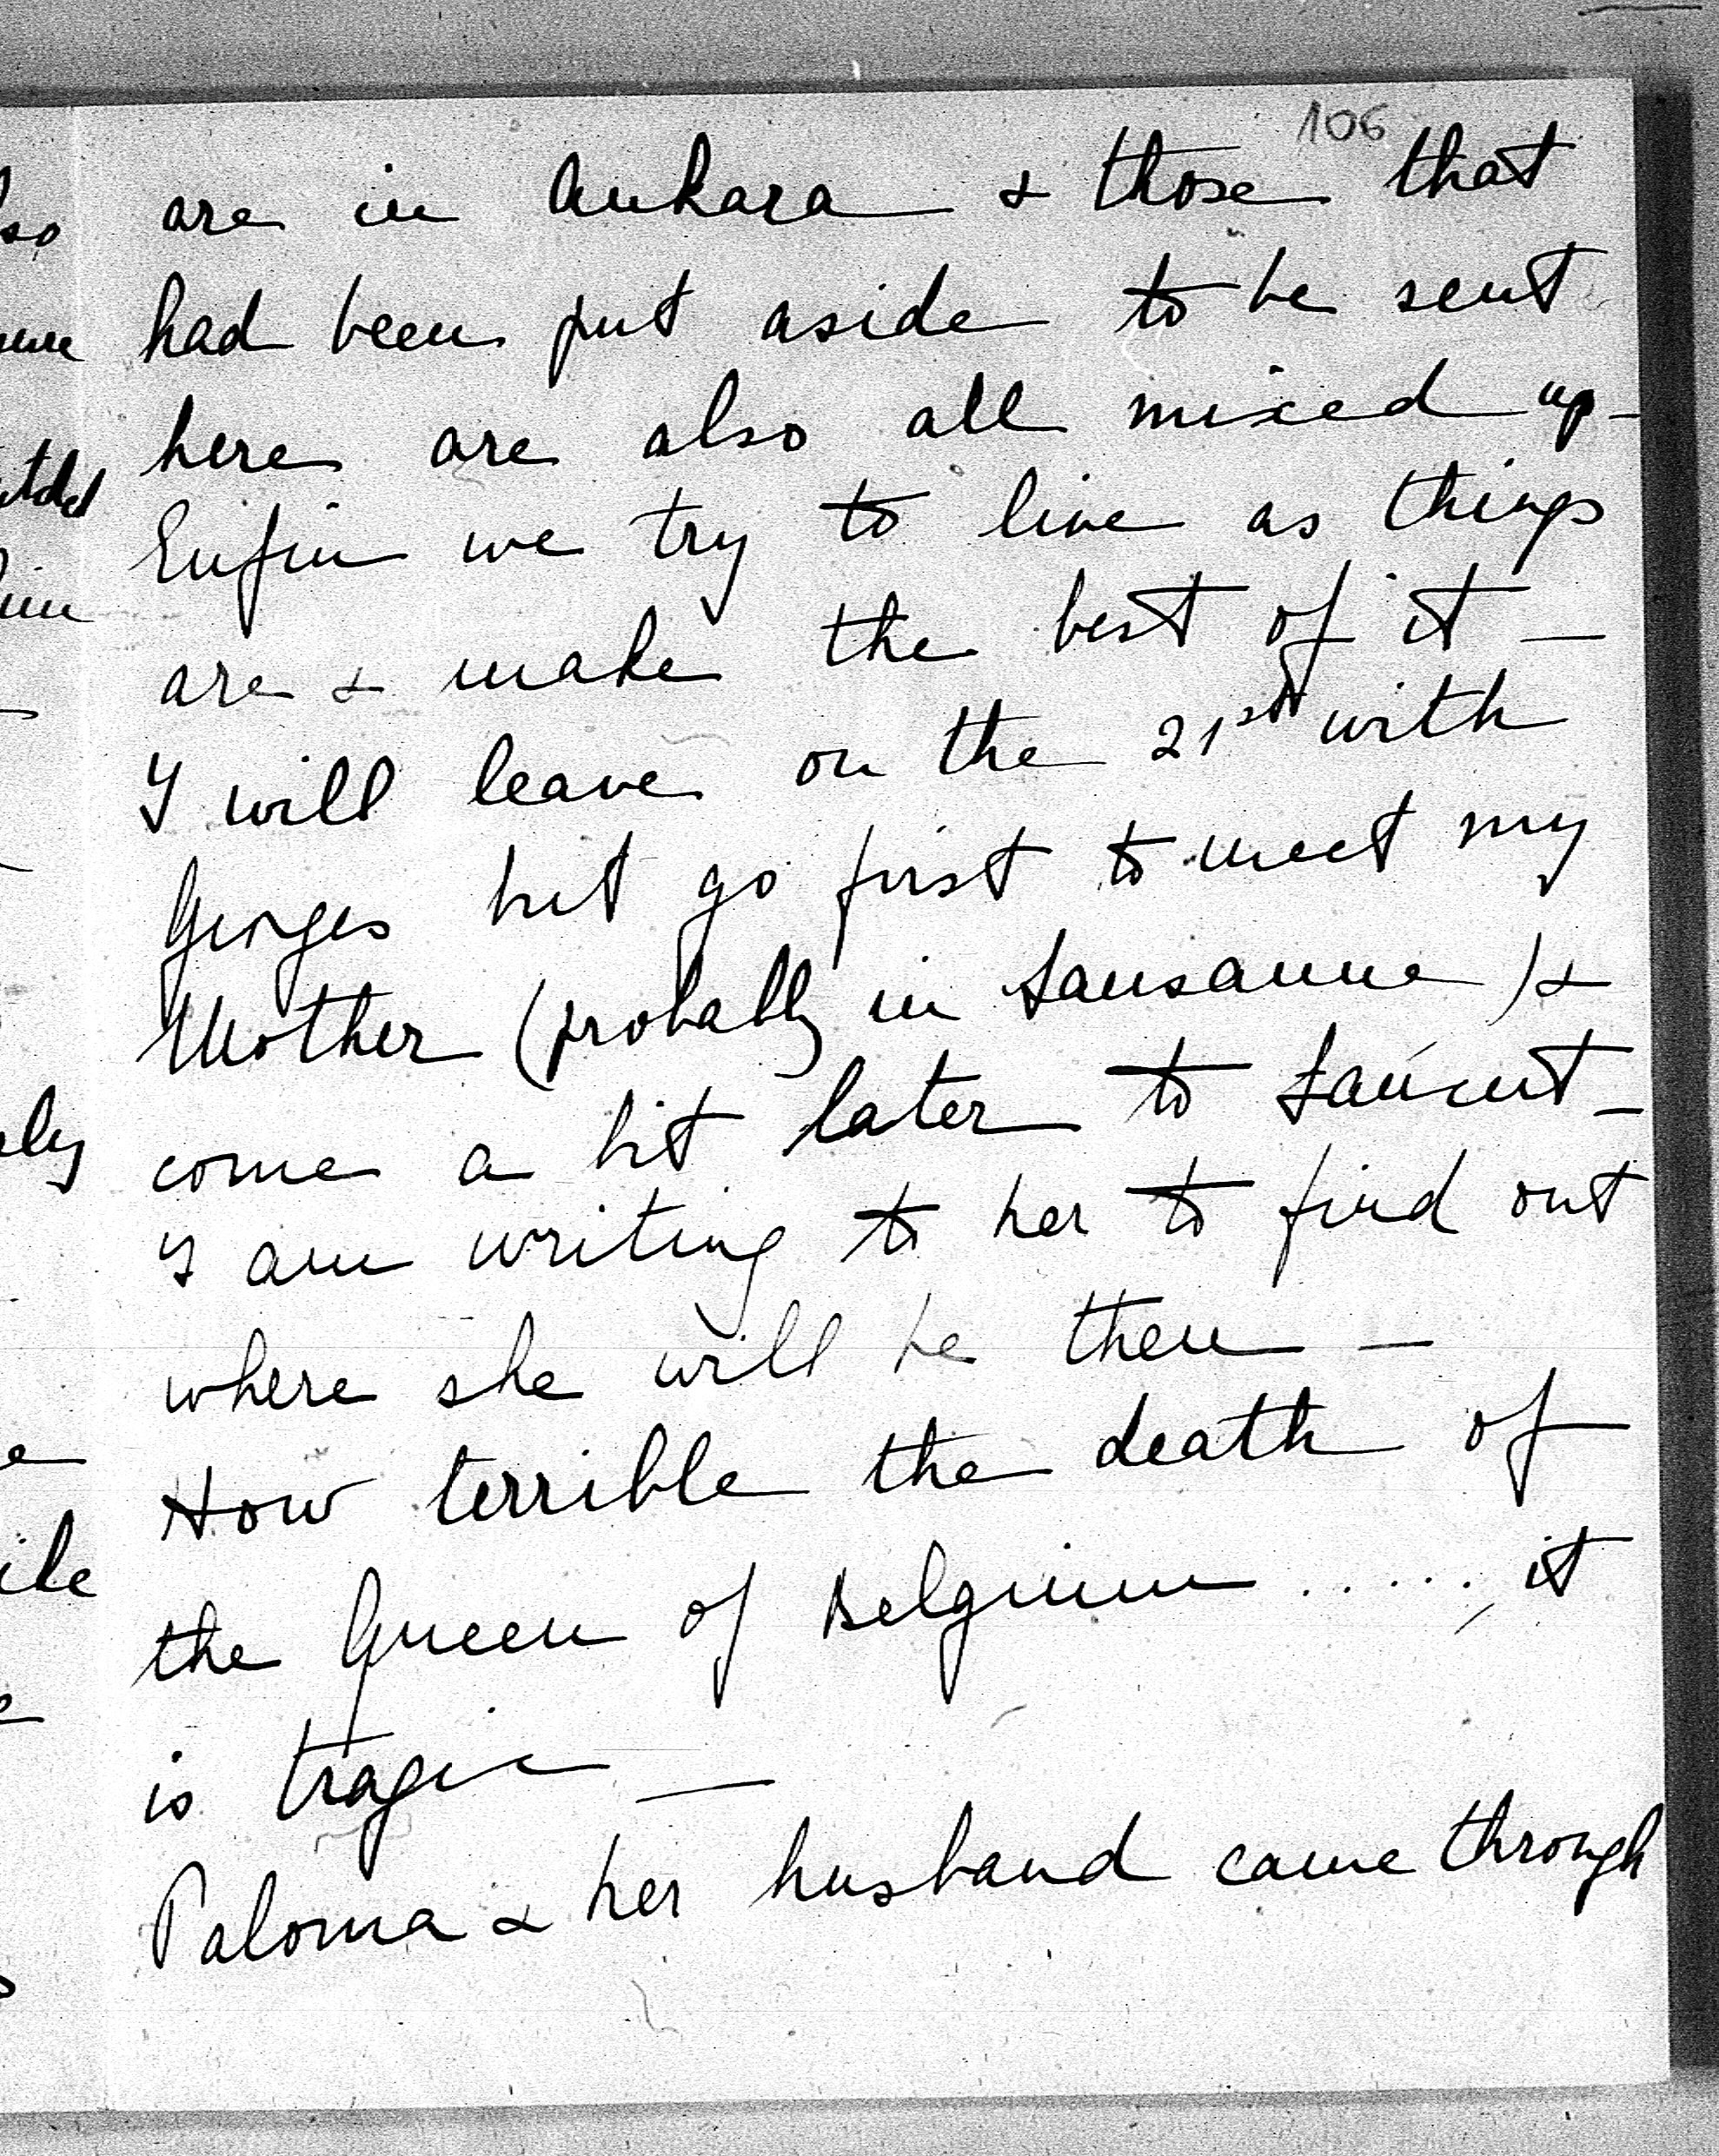 106
are in Ankara & those that
had been put aside to be sent
here are also all mixed up -
Enfin we try to live as things
are & make the best of it —
I will leave on the 21st with
Georges but go first to meet my
Mother (probably in Lausanne) &
come a bit later to
I am writing to her to find out
where she will be then —
How terrible the death of
the Queen of Belgium ..... it
is tragic —
Paloma & her husband came through